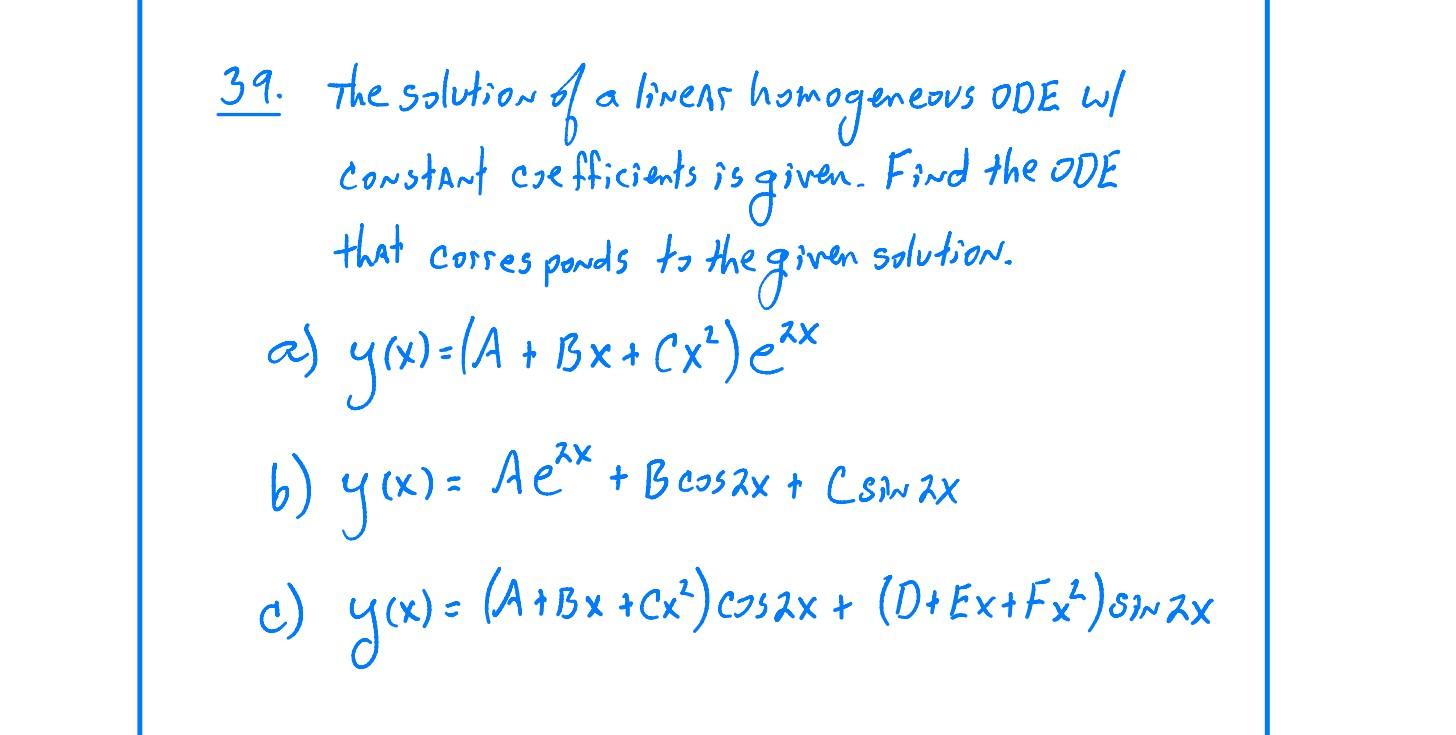 39. The solution of a linear homogeneous ODE w/
constant coefficients is given. Find the ODE
that corresponds to the given solution.
a) y(x)=(A + Bx + Cx²) e²ˣ
b) y(x) = Ae²ˣ + B cos2x + C sin 2x
c) y(x) = (A+Bx+Cx²) cos2x + (D+Ex+Fx²) sin 2x